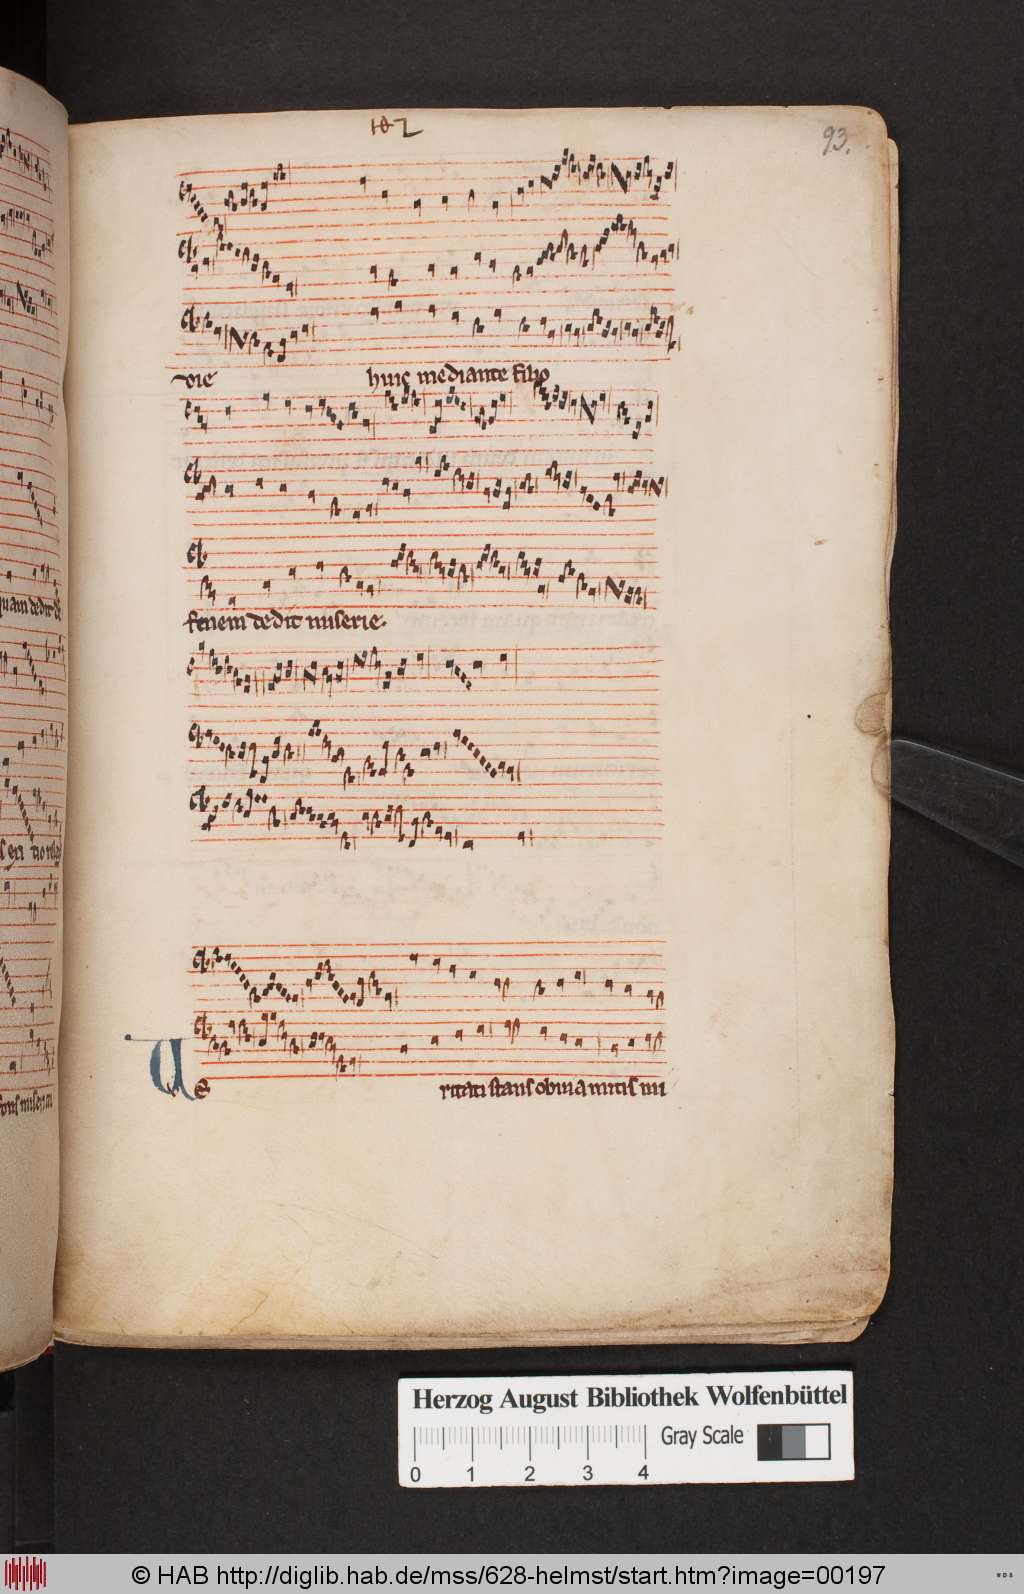 102
93.
die huic mediante filio
finem dedit miserie.
V
E ritati stans obvia mitis mi
quam dedit
Herzog August Bibliothek Wolfenbüttel
Gray Scale
0 1 2 3 4
© HAB http://diglib.hab.de/mss/628-helmst/start.htm?image=00197